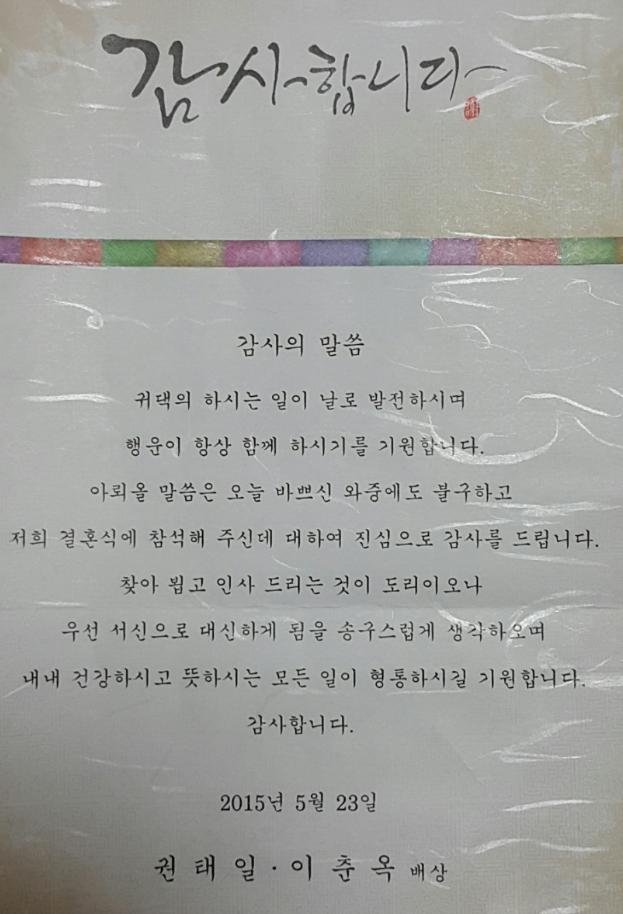 감사합니다
감사의 말씀
귀댁의 하시는 일이 날로 발전하시며
행운이 항상 함께 하시기를 기원합니다.
아뢰올 말씀은 오늘 바쁘신 와중에도 불구하고
저희 결혼식에 참석해 주신데 대하여 진심으로 감사를 드립니다.
찾아 뵙고 인사 드리는 것이 도리이오나
우선 서신으로 대신하게 됨을 송구스럽게 생각하오며
내내 건강하시고 뜻하시는 모든 일이 형통하시길 기원합니다.
감사합니다.
2015년 5월 23일
권태일·이춘옥 배상